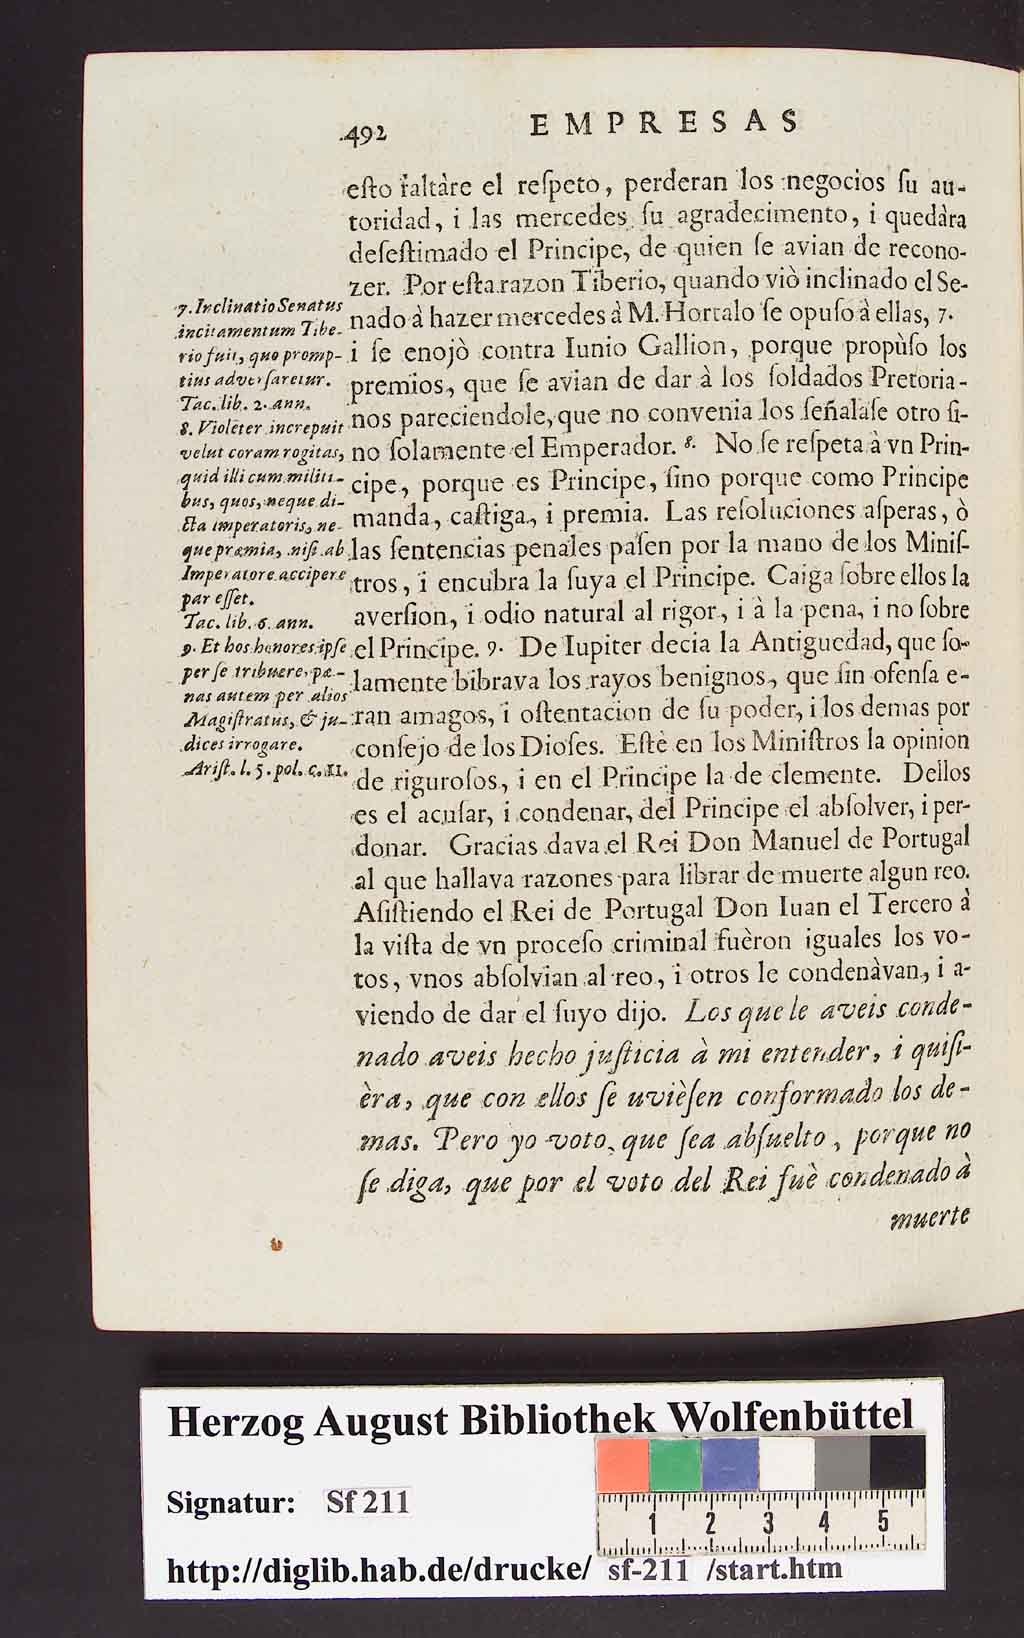 492
EMPRESAS
eſto faltàre el reſpeto, perderan los negocios ſu au-
toridad, i las mercedes ſu agradecimento, i quedàra
deſeſtimado el Principe, de quien ſe avian de recono-
zer. Por eſta razon Tiberio, quando viò inclinado el Se-
nado à hazer mercedes à M. Hortalo ſe opuſo à ellas, 7.
i ſe enojò contra Iunio Gallion, porque propùſo los
premios, que ſe avian de dar à los ſoldados Pretoria-
nos pareciendole, que no convenia los ſeñalaſe otro ſi-
no ſolamente el Emperador. 8. No ſe reſpeta à vn Prin-
cipe, porque es Principe, ſino porque como Principe
manda, caſtiga, i premia. Las reſoluciones aſperas, ò
las ſentencias penales paſen por la mano de los Miniſ-
tros, i encubra la ſuya el Principe. Caiga ſobre ellos la
averſion, i odio natural al rigor, i à la pena, i no ſobre
el Principe. 9. De Iupiter decia la Antiguedad, que ſo-
lamente bibrava los rayos benignos, que ſin ofenſa e-
ran amagos, i oſtentacion de ſu poder, i los demas por
conſejo de los Dioſes. Eſtè en los Miniſtros la opinion
de riguroſos, i en el Principe la de clemente. Dellos
es el acuſar, i condenar, del Principe el abſolver, i per-
donar. Gracias dava el Rei Don Manuel de Portugal
al que hallava razones para librar de muerte algun reo.
Aſiſtiendo el Rei de Portugal Don Iuan el Tercero à
la viſta de vn proceſo criminal fuèron iguales los vo-
tos, vnos abſolvian al reo, i otros le condenàvan, i a-
viendo de dar el ſuyo dijo. Los que le aveis conde-
nado aveis hecho juſticia à mi entender, i quiſi-
èra, que con ellos ſe uvièſen conformado los de-
mas. Pero yo voto, que ſea abſuelto, porque no
ſe diga, que por el voto del Rei fuè condenado à
muerte
7. Inclinatio Senatus
incitamentum Tibe-
rio fuit, quo promp-
tius adverſaretur.
Tac. lib. 2. ann.
8. Violẽter increpuit
velut coram rogitas,
quid illi cum militi-
bus, quos, neque di-
cta imperatoris, ne-
que præmia, niſi ab
Imperatore accipere
par eſſet.
Tac. lib. 6. ann.
9. Et hos honores ipſe
per ſe tribuere, pœ-
nas autem per alios
Magiſtratus, & ju-
dices irrogare.
Ariſt. l. 5. pol. c. 11.
Herzog August Bibliothek Wolfenbüttel
Signatur: Sf 211
1 2 3 4 5
http://diglib.hab.de/drucke/ sf-211 /start.htm